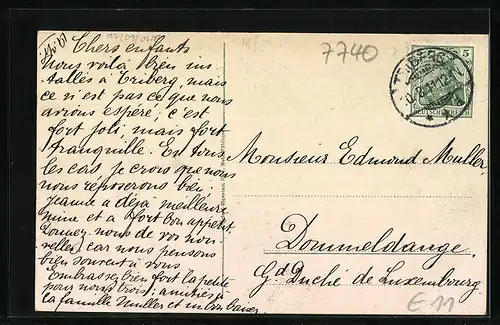 7740
Chers enfants
nous voilà bien ins
tallés à Triberg, mais
ce n'est pas ce que nous
avions espéré; c'est
fort joli, mais fort
tranquille. En tous
les cas, je crois que nous
nous reposerons bien,
Jeanne a déjà meilleure
mine et a fort bon appétit
Donnez-nous de vos nou
velles, car nous pensons
bien souvent à vous
Embrassez bien fort la petite
pour nous trois; amitiés à
la famille Muller et un bon baiser.
5
TRIBERG
DEUTSCHES REICH
Monsieur Edmond Muller,
Dommeldange,
Gd Duché de Luxembourg
E 11